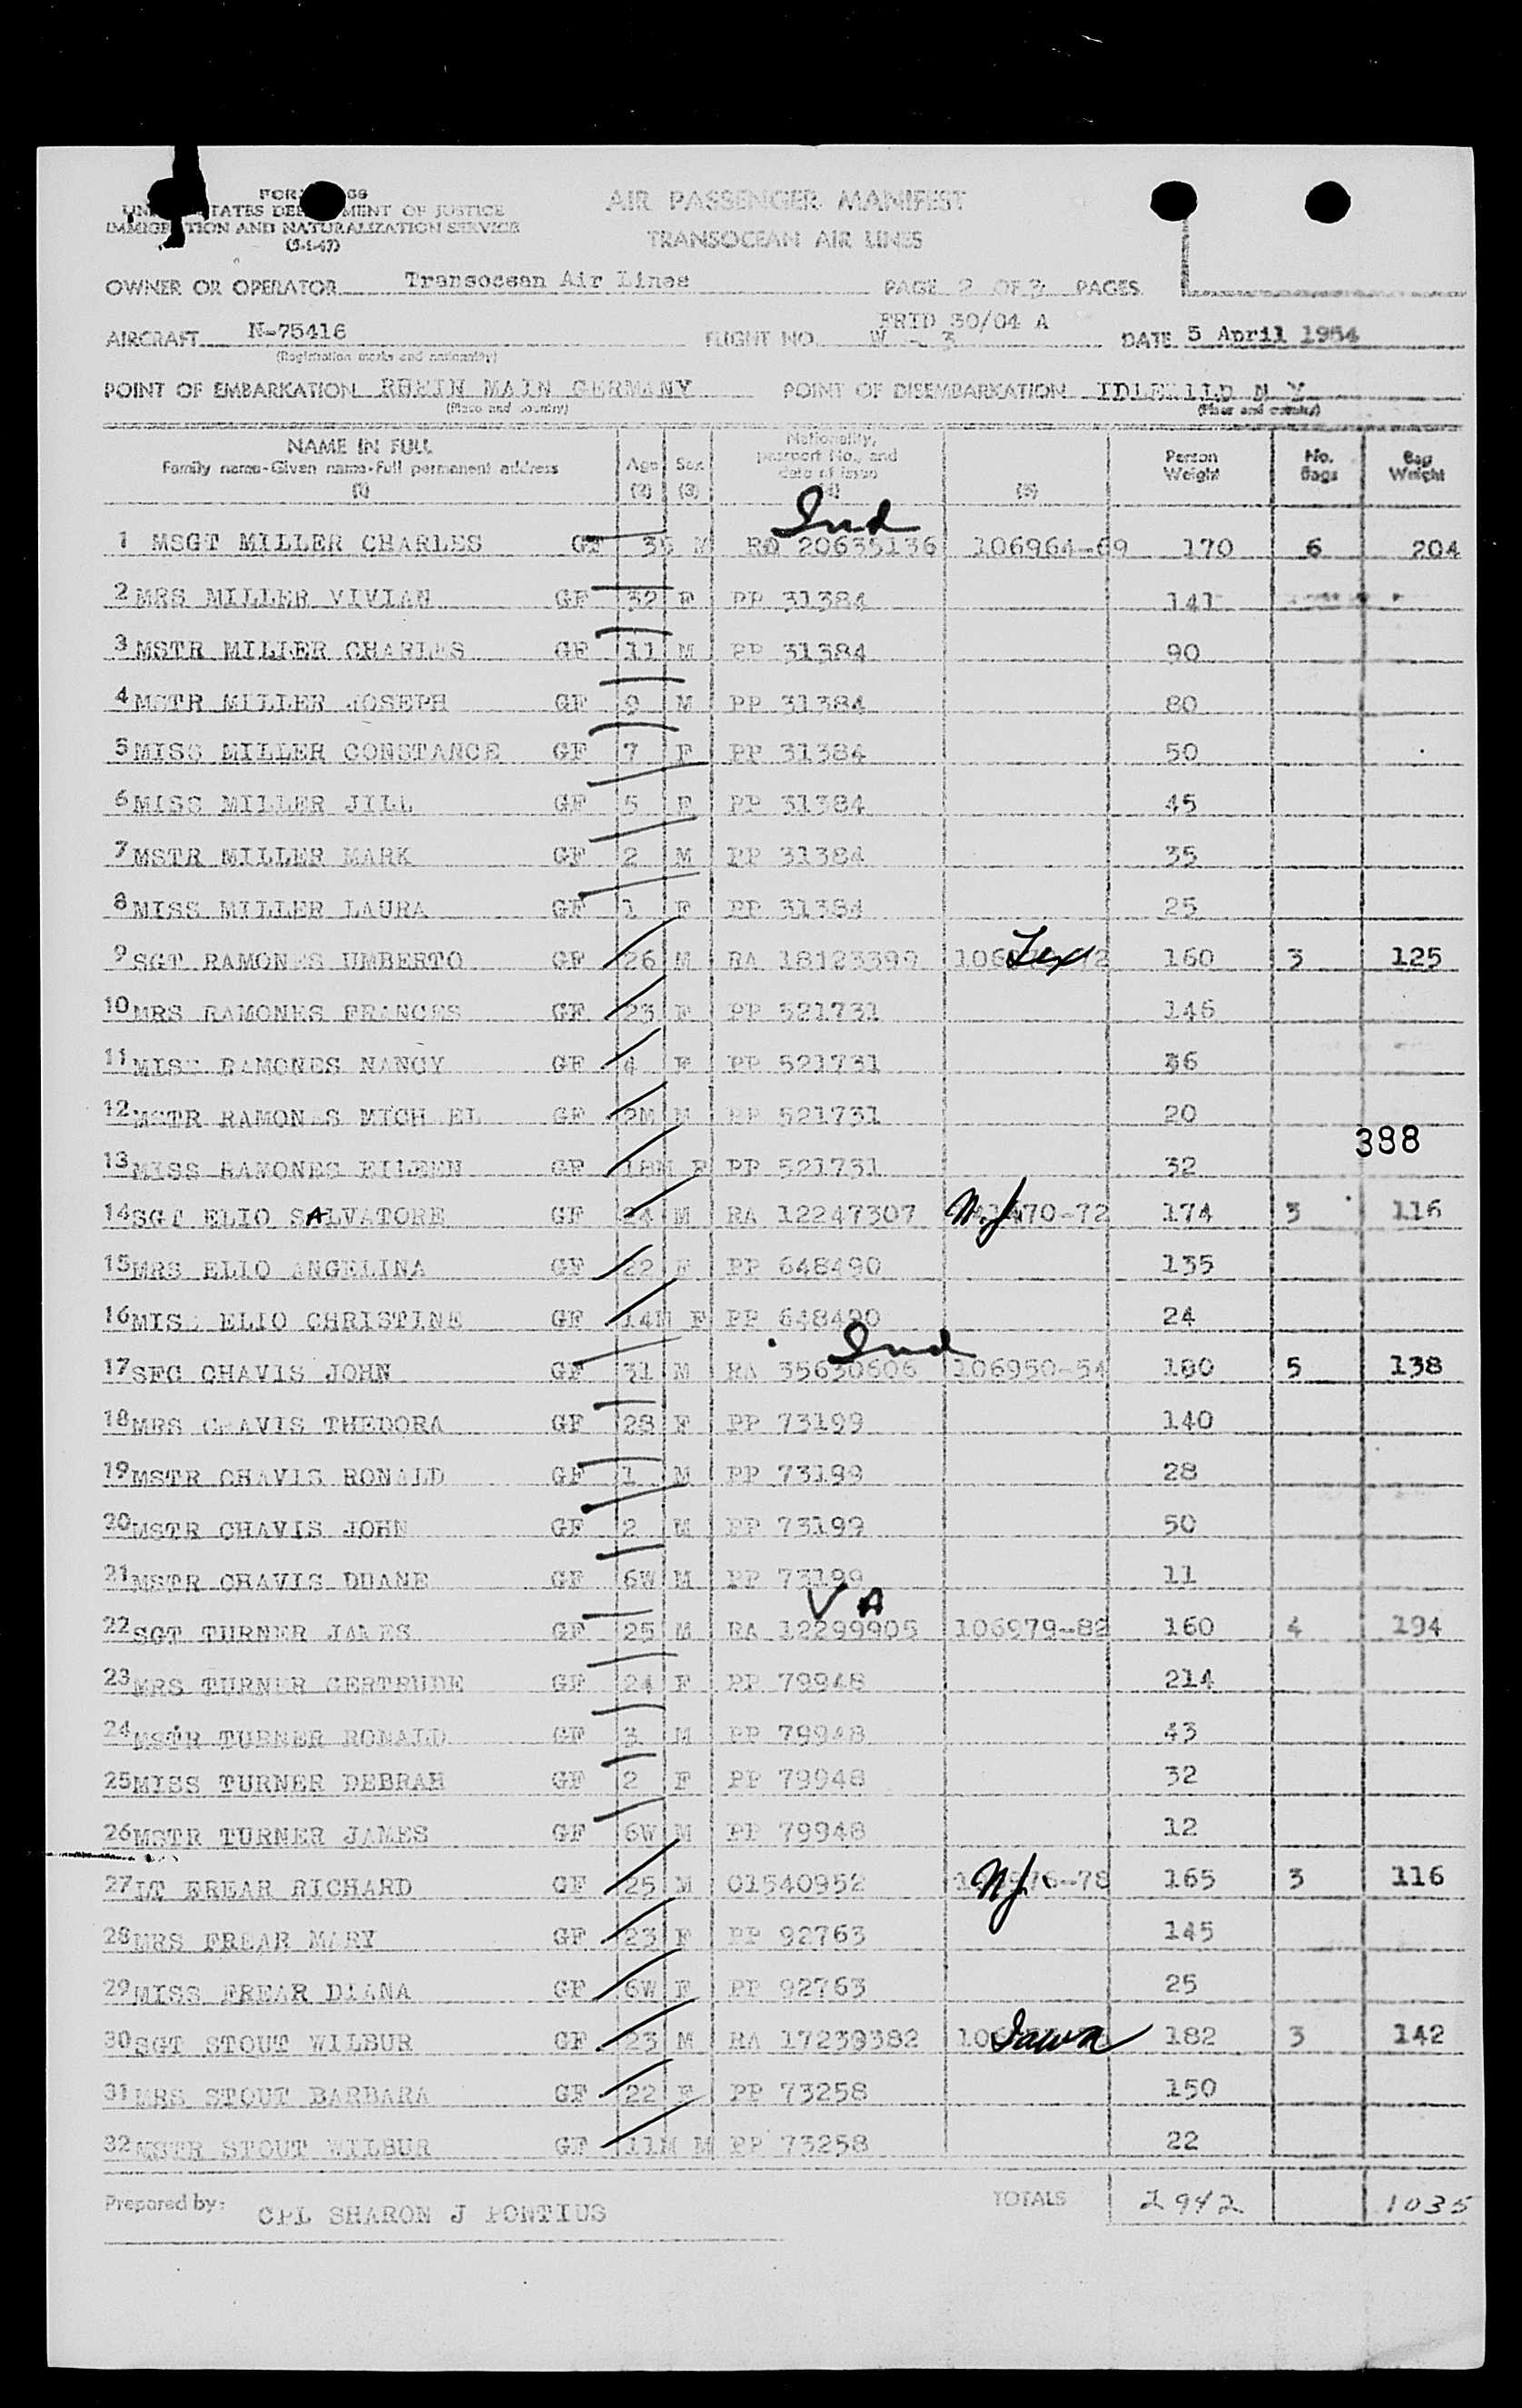 AIR PASSENGER MANIFEST
TRANSOCEAN AIR LINES
MENT OF JUSTICE
TION AND NATURALIZATION SERVICE
(5-1-47)
OWNER OR OPERATOR Transocean Air Lines PAGE 2 OF 3 PAGES
AIRCRAFT N-75416 FLIGHT NO. W - 3 PRID 30/04 A DATE 5 April 1954
(Registration marks and nationality)
POINT OF EMBARKATION RHEIN MAIN GERMANY POINT OF DISEMBARKATION IDLEWILD N Y
(Place and country) (Place and country)
NAME IN FULL Family name-Given name-Full permanent address (1) Age (2) Sex (3) Nationality, passport No., and date of issue (4) (5) Person Weight No. Bags Bag Weight
Ind
1 MSGT MILLER CHARLES GF 35 M RO 20635136 106964-69 170 6 204
2 MRS MILLER VIVIAN GF 32 F PP 31384 141
3 MSTR MILLER CHARLES GF 11 M PP 31384 90
4 MSTR MILLER JOSEPH GF 9 M PP 31384 80
5 MISS MILLER CONSTANCE GF 7 F PP 31384 50
6 MISS MILLER JILL GF 5 F PP 31384 45
7 MSTR MILLER MARK GF 2 M PP 31384 35
8 MISS MILLER LAURA GF 1 F PP 31384 25
9 SGT RAMONES UMBERTO GF 26 M RA 18123399 Tex 160 3 125
10 MRS RAMONES FRANCES GF 23 F PP 521731 146
11 MISS RAMONES NANCY GF 4 F PP 521731 36
12 MSTR RAMONES MICHAEL GF 2M M PP 521731 20
388
13 MISS RAMONES EILEEN GF 18M F PP 521731 32
14 SGT ELIO SALVATORE GF 24 M RA 12247307 N.J. 70-72 174 3 116
15 MRS ELIO ANGELINA GF 22 F PP 648490 135
16 MISS ELIO CHRISTINE GF 14M F PP 648490 24
Ind
17 SFC CHAVIS JOHN GF 31 M RA 35630606 106950-54 180 5 138
18 MRS CHAVIS THEDORA GF 28 F PP 73199 140
19 MSTR CHAVIS RONALD GF 1 M PP 73199 28
20 MSTR CHAVIS JOHN GF 2 M PP 73199 50
21 MSTR CHAVIS DUANE GF 6W M PP 73199 11
VA
22 SGT TURNER JAMES GF 25 M RA 12299905 106979-82 160 4 194
23 MRS TURNER GERTRUDE GF 24 F PP 79948 214
24 MSTR TURNER RONALD GF 3 M PP 79948 43
25 MISS TURNER DEBRAH GF 2 F PP 79948 32
26 MSTR TURNER JAMES GF 6W M PP 79948 12
27 LT FREAR RICHARD GF 25 M 01540952 NJ. 76-78 165 3 116
28 MRS FREAR MARY GF 23 F PP 92763 145
29 MISS FREAR DIANA GF 6W F PP 92763 25
30 SGT STOUT WILBUR GF 23 M RA 17239382 182 3 142
31 MRS STOUT BARBARA GF 22 F PP 73258 150
32 MSTR STOUT WILBUR GF 11M M PP 73258 22
Prepared by: CPL SHARON J PONTIUS TOTALS 2942 1035